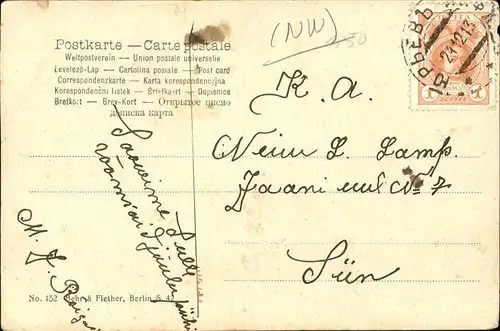 (NW)
Postkarte — Carte postale
Weltpostverein — Union postale universelle
Levelező-Lap — Cartolina postale — Post card
Correspondenzkarte — Karta korespondencyjna
Korespondenční listek — Briefkaart — Dopisnice
Brefkort — Brev-Kort — Открытое письмо
дописна карта
ЮРЬЕВЪ
24 12 13
1
1
K. A.
Neiu L. Lamp.
Jaani uul No 7
Siin
Soovime Teile
rõõmsaid
M. J.
No. 152 Behr & Flether, Berlin S. 42